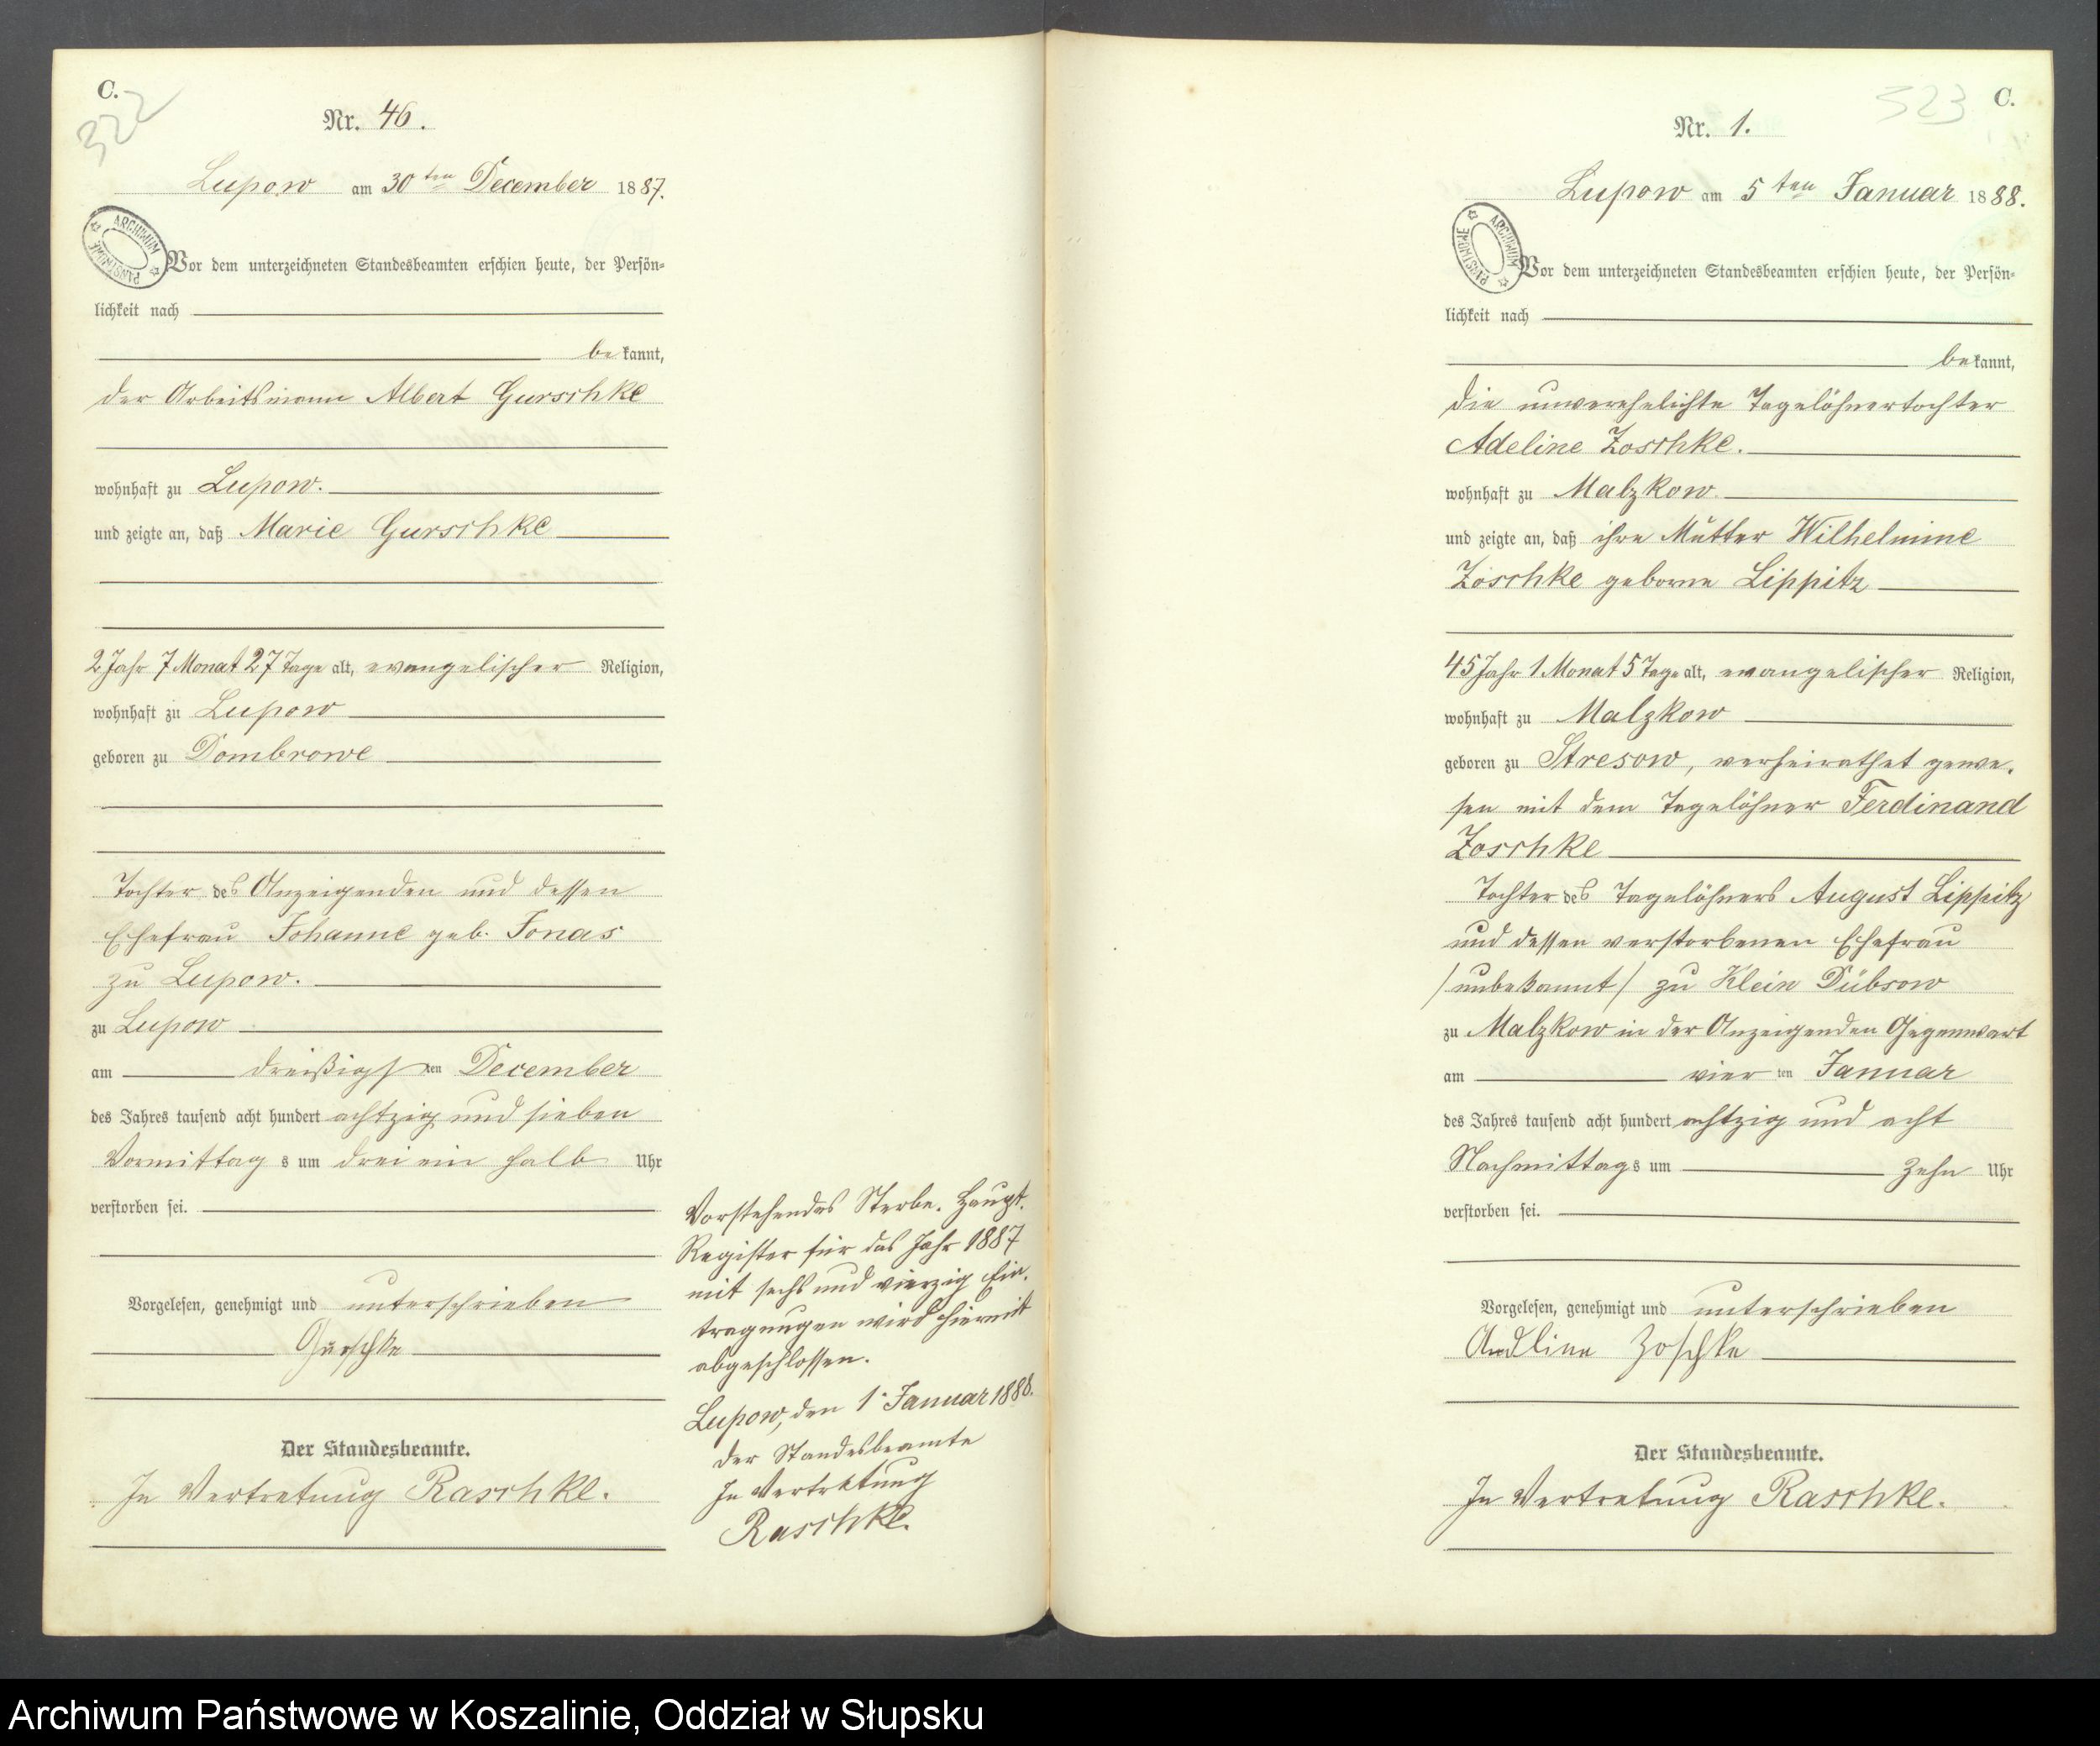 C.
322
Nr. 46.
Lupow am 30ten December 1887.
ARCHIWUM PAŃSTWOWE
Vor dem unterzeichneten Standesbeamten erschien heute, der Persön=
lichkeit nach
bekannt,
der Arbeitsmann Albert Gurschke
wohnhaft zu Lupow.
und zeigte an, daß Marie Gurschke
2 Jahr 7 Monat 27 Tage alt, evangelischer Religion,
wohnhaft zu Lupow
geboren zu Dombrowe
Tochter des Anzeigenden und dessen
Ehefrau Johanne geb. Jonas
zu Lupow.
zu Lupow
am dreißigsten December
des Jahres tausend acht hundert achtzig und sieben
Vormittags um drei ein halb Uhr
verstorben sei.
Vorgelesen, genehmigt und unterschrieben
Gurschke
Der Standesbeamte.
In Vertretung Raschke.
Vorstehendes Sterbe-Haupt-
Register für das Jahr 1887
mit sechs und vierzig Ein-
tragungen wird hiermit
abgeschlossen.
Lupow, den 1. Januar 1888.
Der Standesbeamte
In Vertretung
Raschke.
523
C.
Nr. 1.
Lupow am 5ten Januar 1888.
ARCHIWUM PAŃSTWOWE
Vor dem unterzeichneten Standesbeamten erschien heute, der Persön=
lichkeit nach
bekannt,
die unverehelichte Tagelöhnertochter
Adeline Zoschke.
wohnhaft zu Malzkow
und zeigte an, daß ihre Mutter Wilhelmine
Zoschke geborne Lippitz
45 Jahr 1 Monat 5 Tage alt, evangelischer Religion,
wohnhaft zu Malzkow
geboren zu Stresow, verheirathet gewe-
sen mit dem Tagelöhner Ferdinand
Zoschke
Tochter des Tagelöhners August Lippitz
und dessen verstorbenen Ehefrau
/unbekannt/ zu Klein Dübsow
zu Malzkow in der Anzeigenden Gegenwart
am vierten Januar
des Jahres tausend acht hundert achtzig und acht
Nachmittags um zehn Uhr
verstorben sei.
Vorgelesen, genehmigt und unterschrieben
Andline Zoschke
Der Standesbeamte.
In Vertretung Raschke.
Archiwum Państwowe w Koszalinie, Oddział w Słupsku